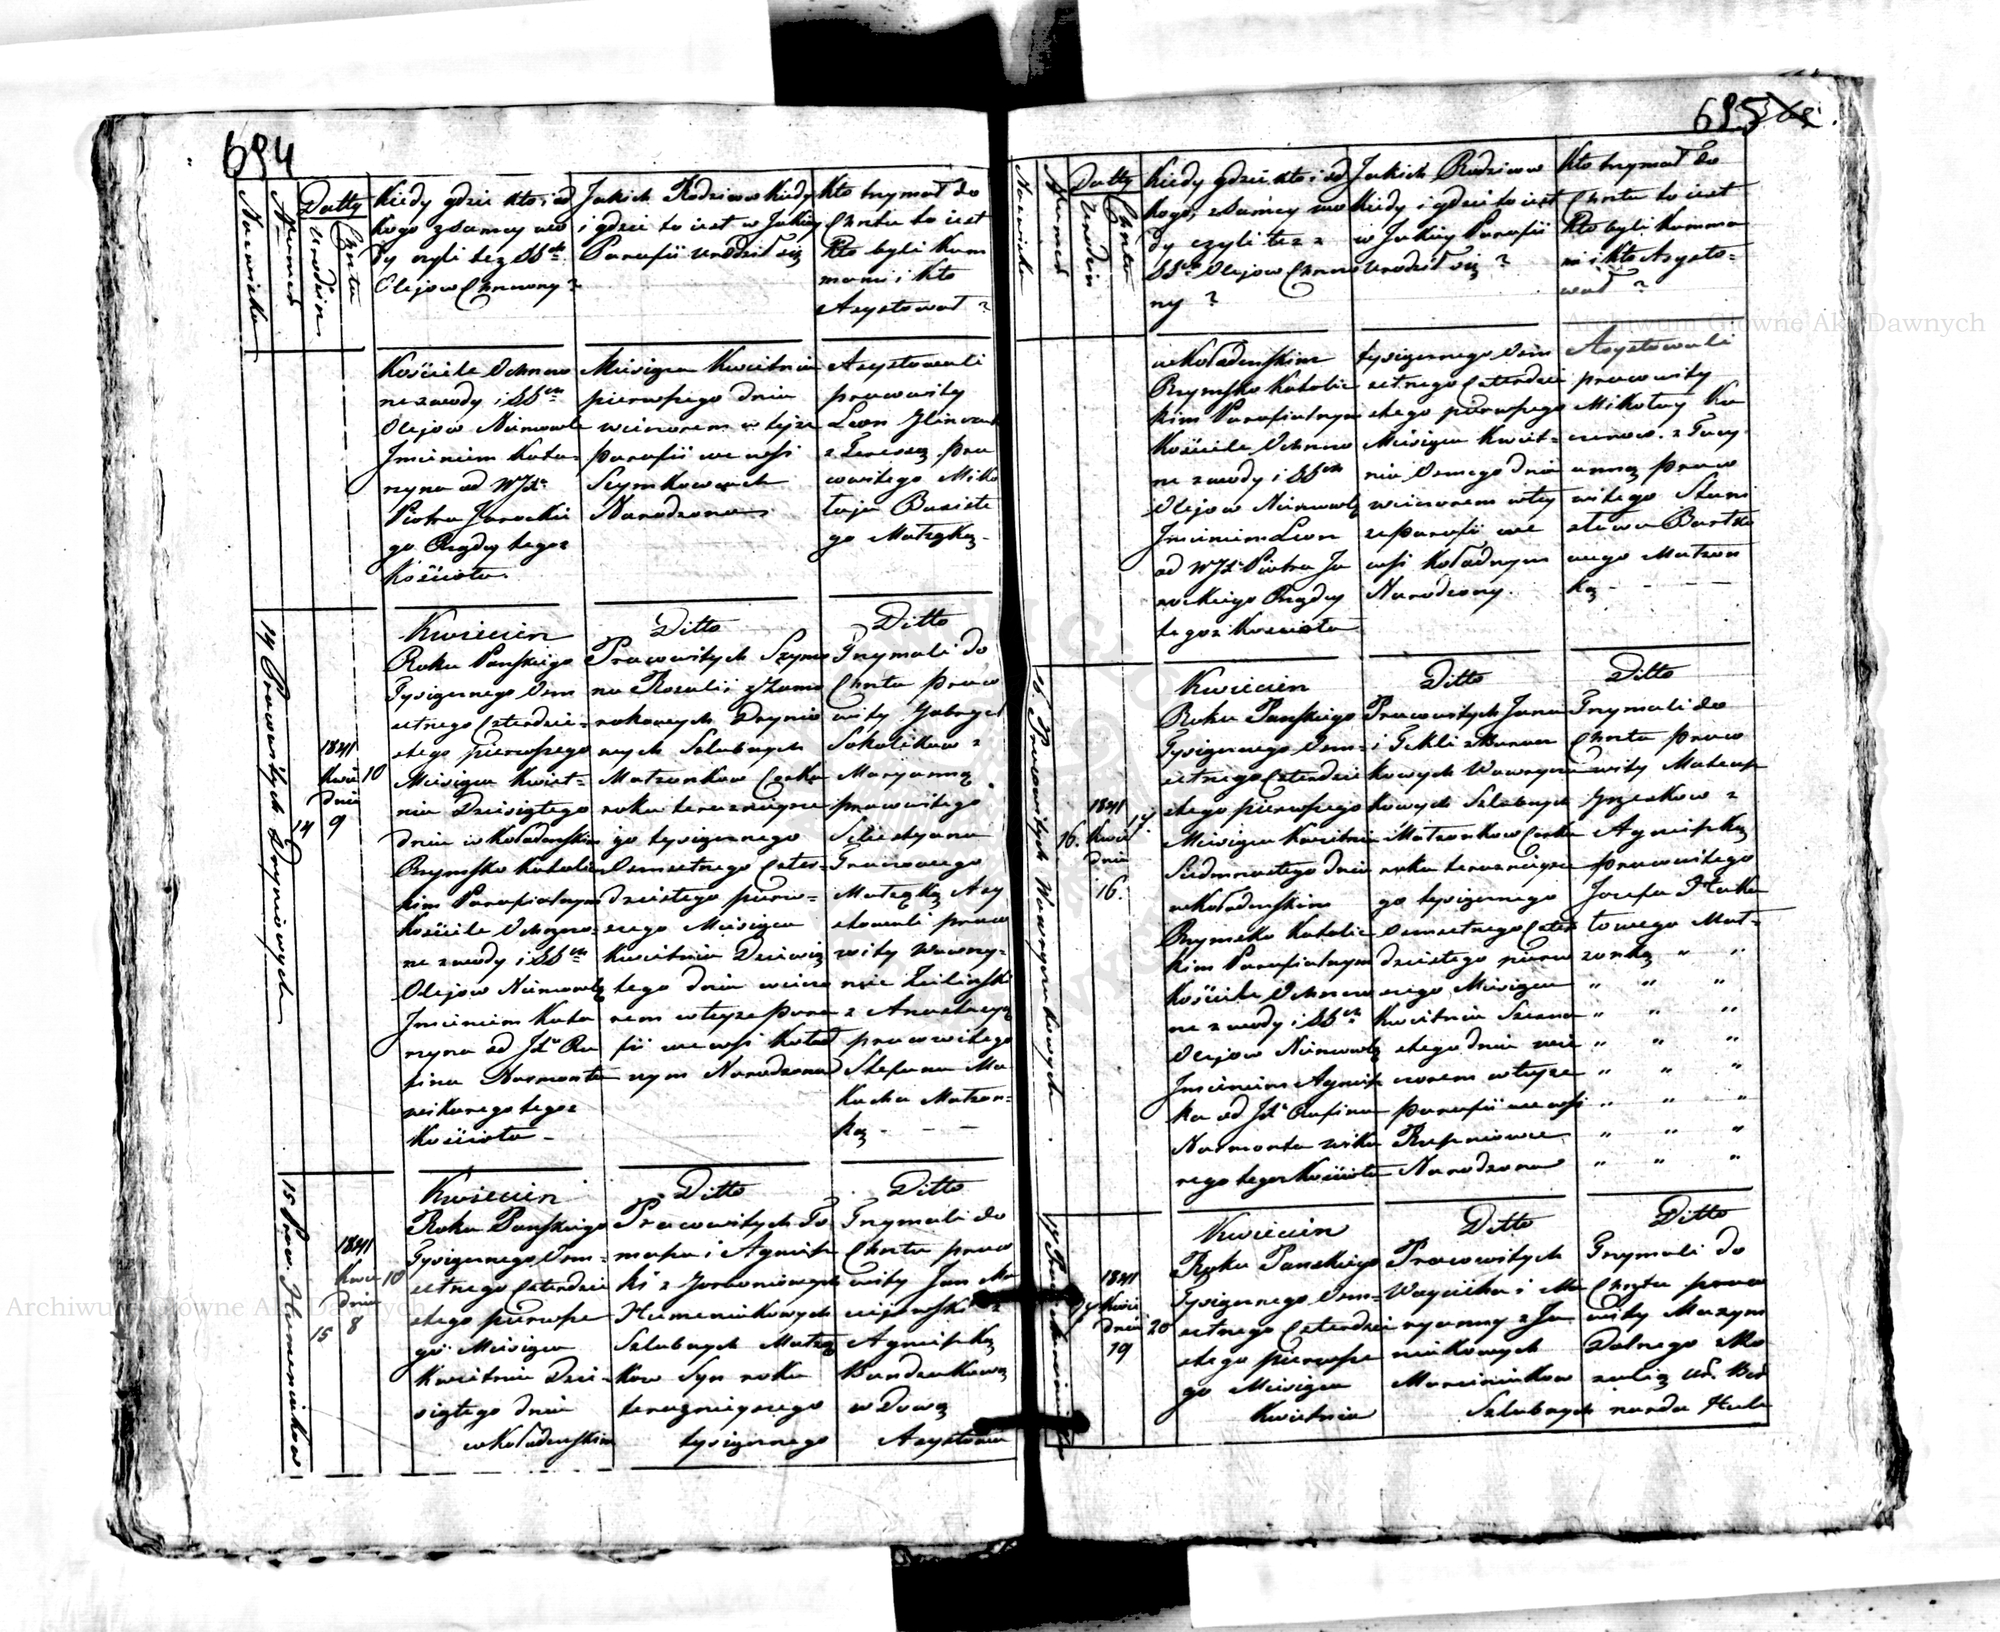 694
Nazwiska
Numer
Datty
Urodzin
Chrztu
Kiedy gdzie kto i od
Kogo z Damcy wo
dy czyli też SSch
Olejow Chrzczony?
Jakich Rodzicow Kiedy
i gdzie to iest w Jakiey
Parafii urodził się
Kto trzymał do
Chrztu to iest
Kto byli Kum
mami i Kto
Asystował?
Kościele Ochrzczo
ne z wody i SSch
Olejow Niemowle
Jmieniem Kata
rzyna od WJX
Piotra Jarockie
go Rządcy tegoz
Kościoła
Miesiąca Kwietnia
pierwszego dnia
wieczorem w teyże
parafii we wsi
Szymkowcach
Narodzona
Asystowali
pracowity
Leon Jlinczuk
z Teressą pra
cowitego Miko
łaja Basiste
go Małżąką
14 Pracowitych Dryniowych
14
1841
Kwie
dnia
9
10
Kwiecien
Roku Panskiego
Tysiącznego Osm
setnego Czterdzie-
stego pierwszego
Miesiąca Kwiet-
nia Dziesiątego
dnia w Kołodenskim
Rzymsko Katolic
kim Parafialnym
Kościele Ochrzczo-
ne z wody i SSch
Olejow Niemowlę
Jmieniem Kata
rzyna od JX Ru
fina Narmonta
wikarego tegoz
Kościoła
Ditto
Pracowitych Szymo
na Rozalii z Hama
rakowych Drynio
wych Szlubnych
Małżonkow Corka
roku terazniejsze
go tysiącznego
Osmsetnego Czter-
dziestego pierw-
szego Miesiąca
Kwietnia Dziewią
tego dnia wieczo
rem w teyze Para
fii we wsi Kołod
nym Narodzona
Ditto
Trzymali do
Chrztu praco
wity Gabryel
Sokolikow z
Maryanną
pracowitego
Sebestyana
Małżąką Asy
stowali praco
wity Wawrzy-
z Anastazyą
pracowitego
Stefana Ma
Małżon-
ką
15 Prac. Humeniukow
15
1841
Kwie
dnia
8
10
Kwiecien
Roku Panskiego
Tysiącznego Osm-
setnego Czterdzie
stego pierwsze
go Miesiąca
Kwietnia Dzie-
siątego dnia
w Kołodenskim
Ditto
Pracowitych To
masza i Agniesz
ki z
Humeniukowych
Szlubnych Małżą
kow Syn roku
terazniejszego
tysiącznego
Ditto
Trzymali do
Chrztu praco
wity Jan Ma
ciejowski z
Agnieszką
Bondzukową
wdową
Asystowa
695
Nazwiska
Numer
Datty
Urodzin
Chrztu
Kiedy gdzie kto i od
Kogo, z Damcy wo
dy czyli też z
SSch Olejow Chrzczo
ny?
Jakich Rodzicow
Kiedy i gdzie to iest
w Jakiey Parafii
Urodził się?
Kto trzymał do
Chrztu to iest
Kto byli Kumma
mi i Kto Asysto-
wał?
w Kołodenskim
Rzymsko Katolic
kim Parafialnym
Kościele Ochrzczo
ne z wody i SSch
Olejow Niemowlę
Jmieniem Leon
od WJX Piotra Ja
rockiego Rządcy
tegoz Kościoła
tysiącznego Osm
setnego Czterdzie
stego pierwszego
Miesiąca Kwiet-
nia Osmego dnia
wieczorem w tey
że parafii we
wsi Kołodnym
Narodzony
Asystowali
pracowity
Mikołay Ku
praco
witego Stani
sława Bartko
wego Małżon
ką
16. Pracowitych Wawrzyniukowych
16.
1841
Kwie
dnia
16.
17
Kwiecien
Roku Panskiego
Tysiącznego Osm-
setnego Czterdzie
stego pierwszego
Miesiąca Kwietnia
Siedmnastego dnia
w Kołodenskim
Rzymsko Katolic
kim Parafialnym
Kościele Ochrzczo
ne z wody i SSch
Olejow Niemowlę
Jmieniem Agniesz
ka od JX Rufina
Narmonta wika
rego tegoz Kościoła
Ditto
Pracowitych Jana
i Tekli z Baran
kowych Wawrzyniu
kowych Szlubnych
Małżonkow Corka
roku terazniejsze
go tysiącznego
Osmsetnego Czter
dziestego pierw
szego Miesiąca
Kwietnia Szesna
stego dnia wie
czorem w teyze
parafii we wsi
Narodzona
Ditto
Trzymali do
Chrztu praco
wity Mateusz
Grzeskow z
Agnieszką
pracowitego
Jozefa
towego Mał-
żonką
17 Prac.
17
1841
Kwie
dnia
19
20
Kwiecien
Roku Panskiego
Tysiącznego Osm-
setnego Czterdzie
stego pierwsze
go Miesiąca
Kwietnia
Ditto
Pracowitych
Woyciecha i Ma
ryanny z Ja
niukowych
Marciniukow
Szlubnych
Ditto
Trzymali do
Chrztu praco
wity Maxym
Ro
zalią
Archiwum Główne Akt Dawnych
Archiwum Główne Akt Dawnych